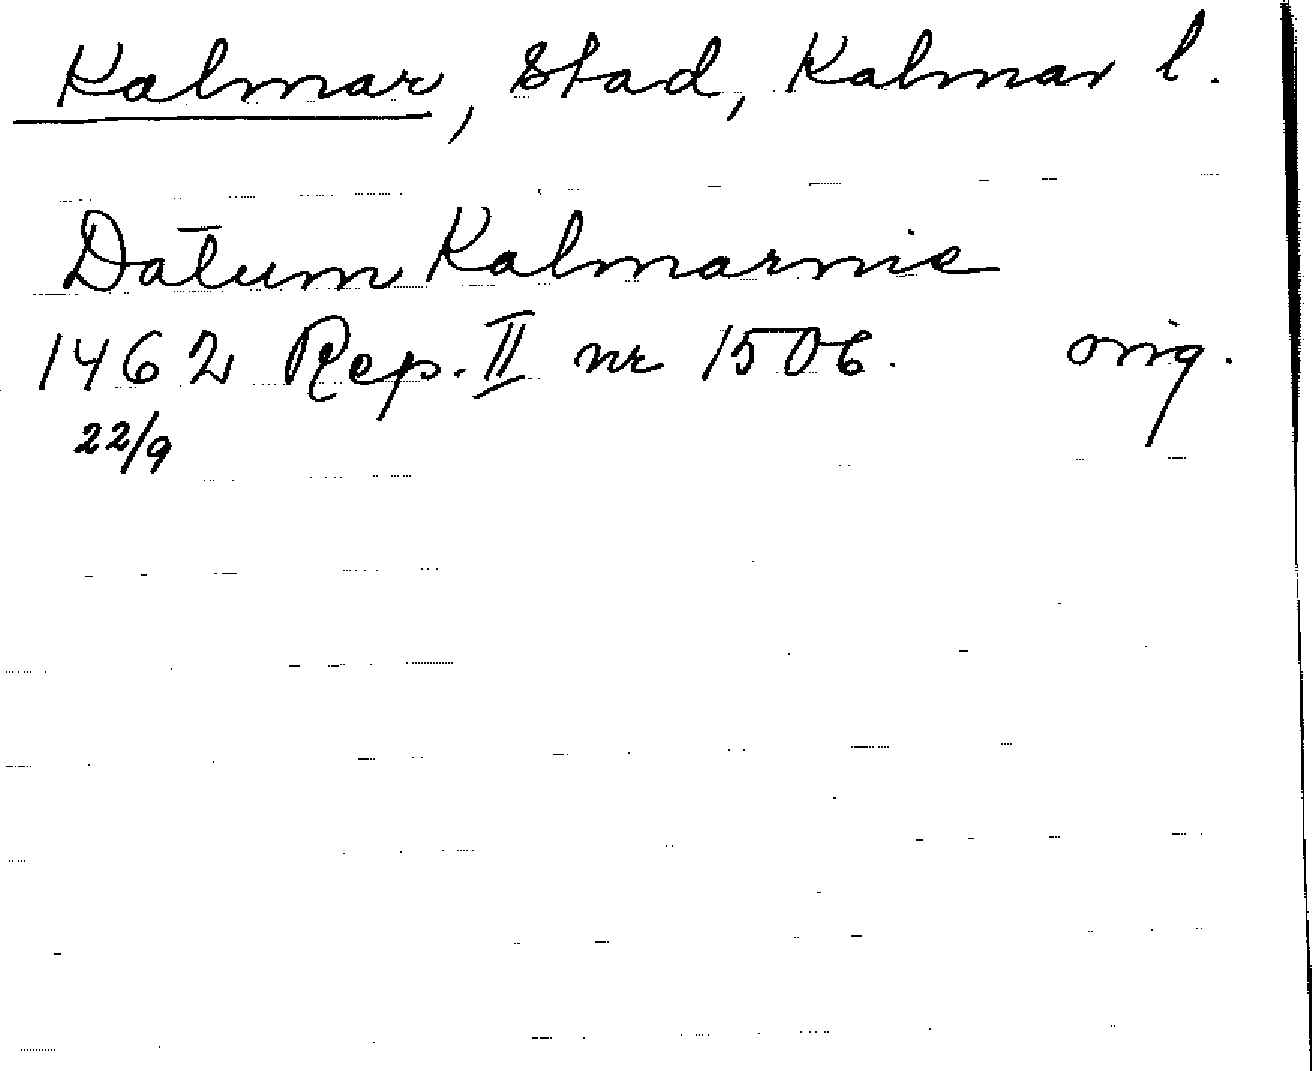 Kalmar, Stad, Kalmar l.
Datum Kalmarnie
1462 Rep. II nr 1506. orig.
22/9